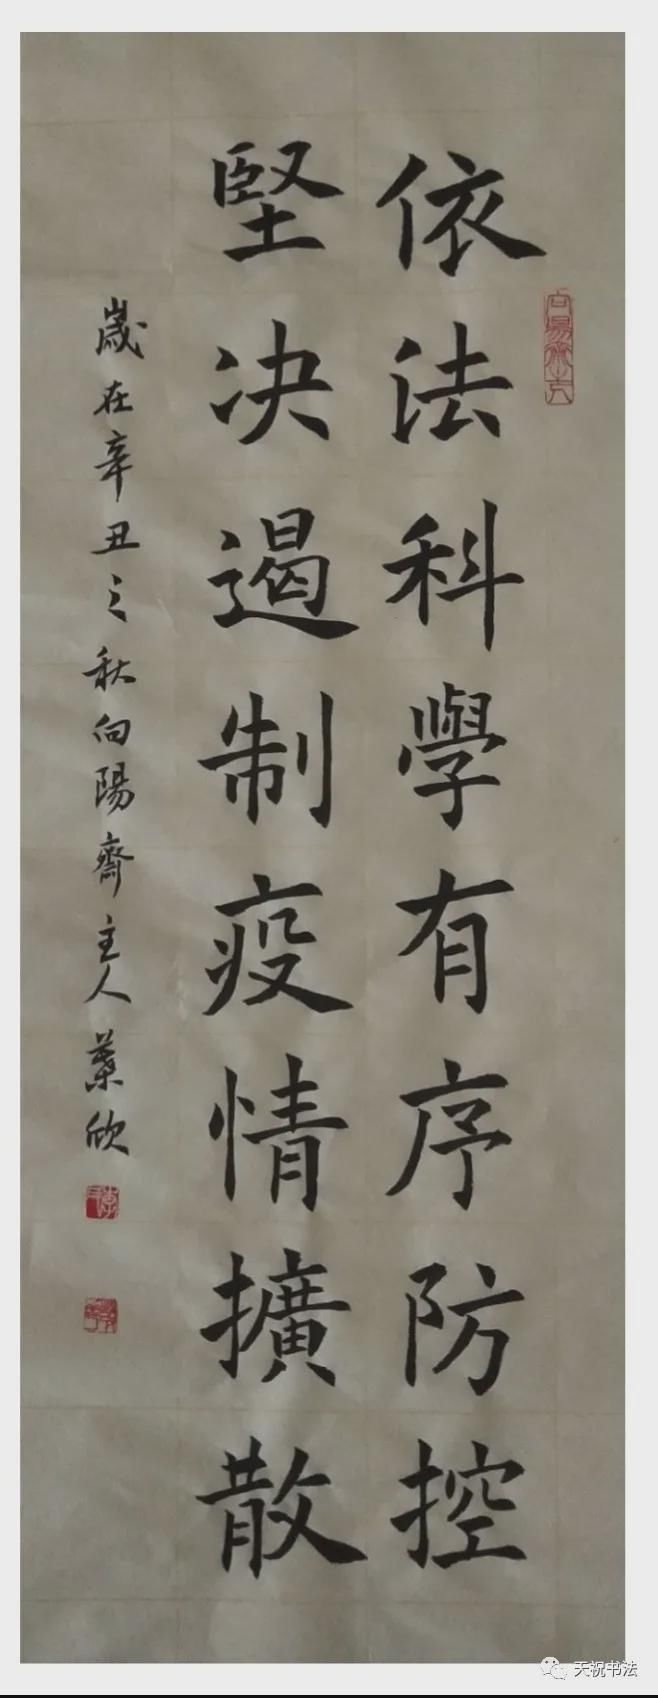 依法科學有序防控
堅决遏制疫情擴散
歲在辛丑之秋向陽齋主人葉欣
天祝书法